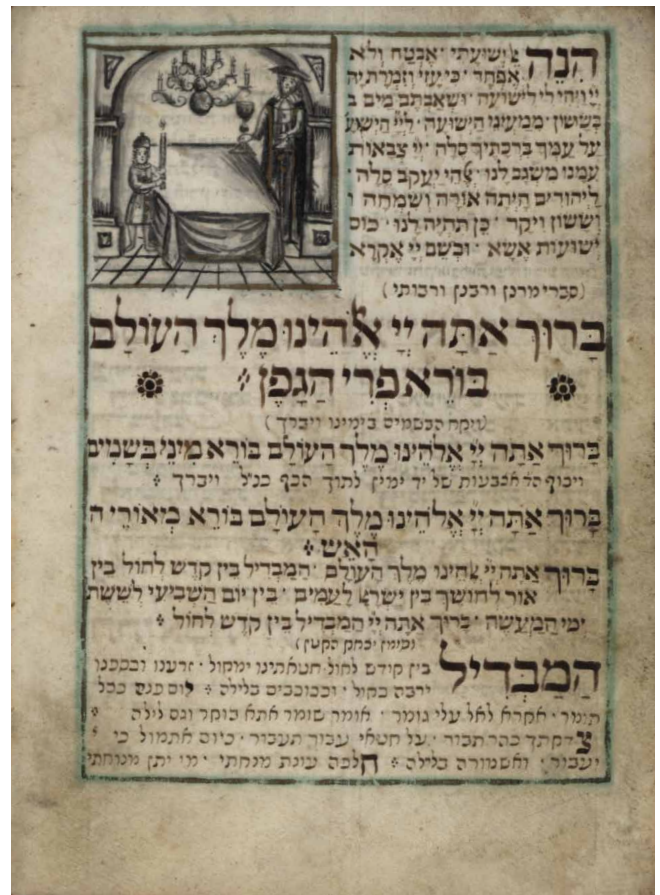 הִנֵּה ﭏ יְשׁוּעָתִי · אֶבְטַח וְלֹא
אֶפְחָד · כִּי עָזִּי וְזִמְרָת יָהּ
יְיָ וַיְהִי לִי לִישׁוּעָה · וּשְׁאַבְתֶּם מַיִם בְּ
בְּשָׂשׂוֹן · מִמַּעַיְנֵי הַיְשׁוּעָה · לַיְיָ הַיְשׁוּעָ
עַל עַמְּךָ בִרְכָתֶךָ סֶּלָה · יְיָ צְבָאוֹת
עִמָּנוּ מִשְׂגָּב לָנוּ · ﭏהֵי יַעֲקֹב סֶלָה ·
לַיְּהוּדִים הָיְתָה אוֹרָה וְשִׂמְחָה וְ
וְשָׂשׂוֹן וִיקָר · כֵּן תִּהְיֶה לָנוּ · כּוֹס
יְשׁוּעוֹת אֶשָּׂא · וּבְשֵׁם יְיָ אֶקְרָא
(סברי מרנן ורבנן ורבותי)
בָּרוּךְ אַתָּה יְיָ אֱﭏהֵינוּ מֶלֶךְ הָעוֹלָם
בּוֹרֵא פְּרִי הַגָּפֶן
(ויקח הבשמים בימינו ויברך)
בָּרוּךְ אַתָּה יְיָ אֱלֹהֵינוּ מֶלֶךְ הָעוֹלָם בּוֹרֵא מִינֵי בְשָׂמִים
ויכוף הד אצבעות של יד ימין לתוך הכף כנ״ל ויברך
בָּרוּךְ אַתָּה יְיָ אֱלֹהֵינוּ מֶלֶךְ הָעוֹלָם בּוֹרֵא מְאוֹרֵי הָ
הָאֵשׁ
בָּרוּךְ אַתָּה יְיָ ﭏהֵינוּ מֶלֶךְ הָעוֹלָם · הַמַּבְדִּיל בֵּין קֹדֶשׁ לְחוֹל בֵּין
אוֹר לְחוֹשֶׁךְ בֵּין יִשְׂרָﭏ לָעַמִּים · בֵּין יוֹם הַשְּׁבִיעִי לְשֵׁשֶׁת
יְמֵי הַמַּעֲשֶׂה · בָּרוּךְ אַתָּה יְיָ הַמַּבְדִּיל בֵּין קֹדֶשׁ לְחוֹל
(בסימן יצחק הקטן)
הַמַּבְדִּיל בין קודש לחול חטאתינו ימחול · זרענו וכספנו
ירבה כחול · וככוכבים בלילה · יום פנה כצל
תומר · אקרא לאל עלי גומר · אומר שומר אתא בוקר וגם לילה
צדקתך כהר תבור · על חטאי עבור תעבור · כיום אתמול כי
יעבור · ואשמורה בלילה · חלפה עונת מנחתי · מי יתן מנוחתי